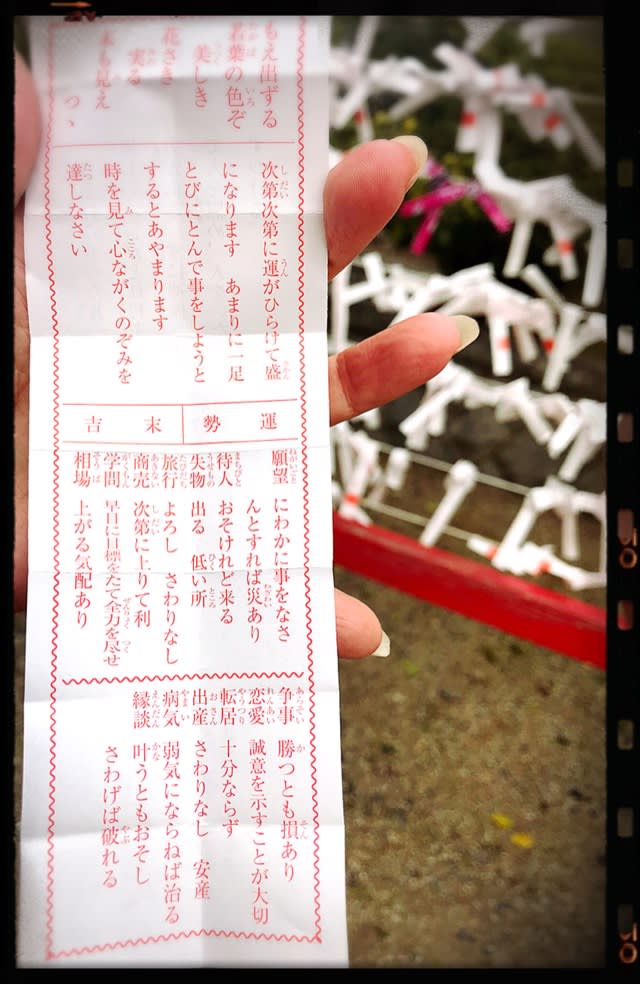 もえ出ずる
若葉の色ぞ
美しき
花さき
実る
末も見え
つゝ
次第次第に運がひらけて盛
になります　あまりに一足
とびにとんで事をしようと
するとあやまります
時を見て心ながくのぞみを
達しなさい
運勢　末吉
願望　にわかに事をなさ
んとすれば災あり
待人　おそけれど来る
失物　出る　低い所
旅行　よろし　さわりなし
商売　次第に上りて利
学問　早目に目標をたて全力を尽せ
相場　上がる気配あり
争事　勝つとも損あり
恋愛　誠意を示すことが大切
転居　十分ならず
出産　さわりなし　安産
病気　弱気にならねば治る
縁談　叶うともおそし
さわげば破れる